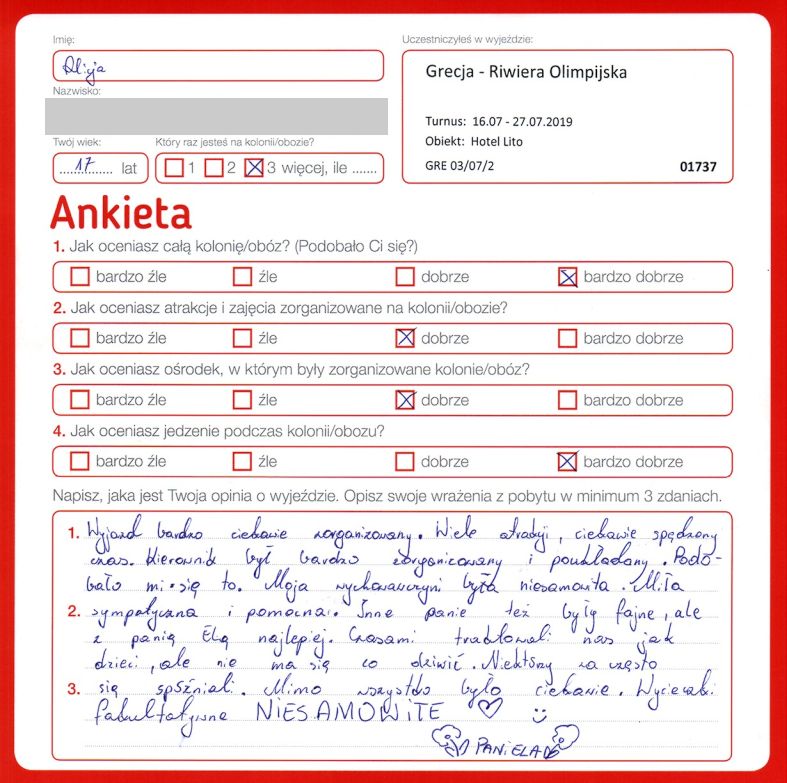 Imię:
Alicja
Nazwisko:
Twój wiek:
17 lat
Który raz jesteś na kolonii/obozie?
1 2 3 więcej, ile .......
Uczestniczyłeś w wyjeździe:
Grecja - Riwiera Olimpijska
Turnus: 16.07 - 27.07.2019
Obiekt: Hotel Lito
GRE 03/07/2 01737
Ankieta
1. Jak oceniasz całą kolonię/obóz? (Podobało Ci się?)
bardzo źle źle dobrze bardzo dobrze
2. Jak oceniasz atrakcje i zajęcia zorganizowane na kolonii/obozie?
bardzo źle źle dobrze bardzo dobrze
3. Jak oceniasz ośrodek, w którym były zorganizowane kolonie/obóz?
bardzo źle źle dobrze bardzo dobrze
4. Jak oceniasz jedzenie podczas kolonii/obozu?
bardzo źle źle dobrze bardzo dobrze
Napisz, jaka jest Twoja opinia o wyjeździe. Opisz swoje wrażenia z pobytu w minimum 3 zdaniach.
1. Wyjazd bardzo ciekawie zorganizowany. Wiele atrakcji, ciekawie spędzony
czas. Kierownik był bardzo zorganizowany i poukładany. Podo-
bało mi się to. Moja wychowawczyni była niesamowita. Miła
2. sympatyczna i pomocna. Inne panie też były fajne, ale
z panią Elą najlepiej. Czasami traktowali nas jak
dzieci, ale nie ma się co dziwić. Niektórzy za często
3. się spóźniali. Mimo wszystko było ciekawie. Wycieczki
fakultatywne NIESAMOWITE ♡ :)
PANIELA